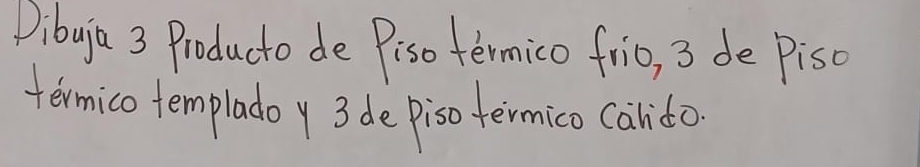 Dibuja 3 Producto de Piso térmico frio, 3 de Piso
térmico templado y 3 de piso térmico Cálido.